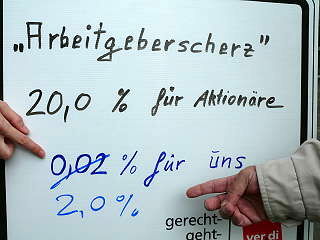 „Arbeitgeberscherz"
20,0 % für Aktionäre
0,02 % für uns
2,0 %
gerecht-
geht-
ver di